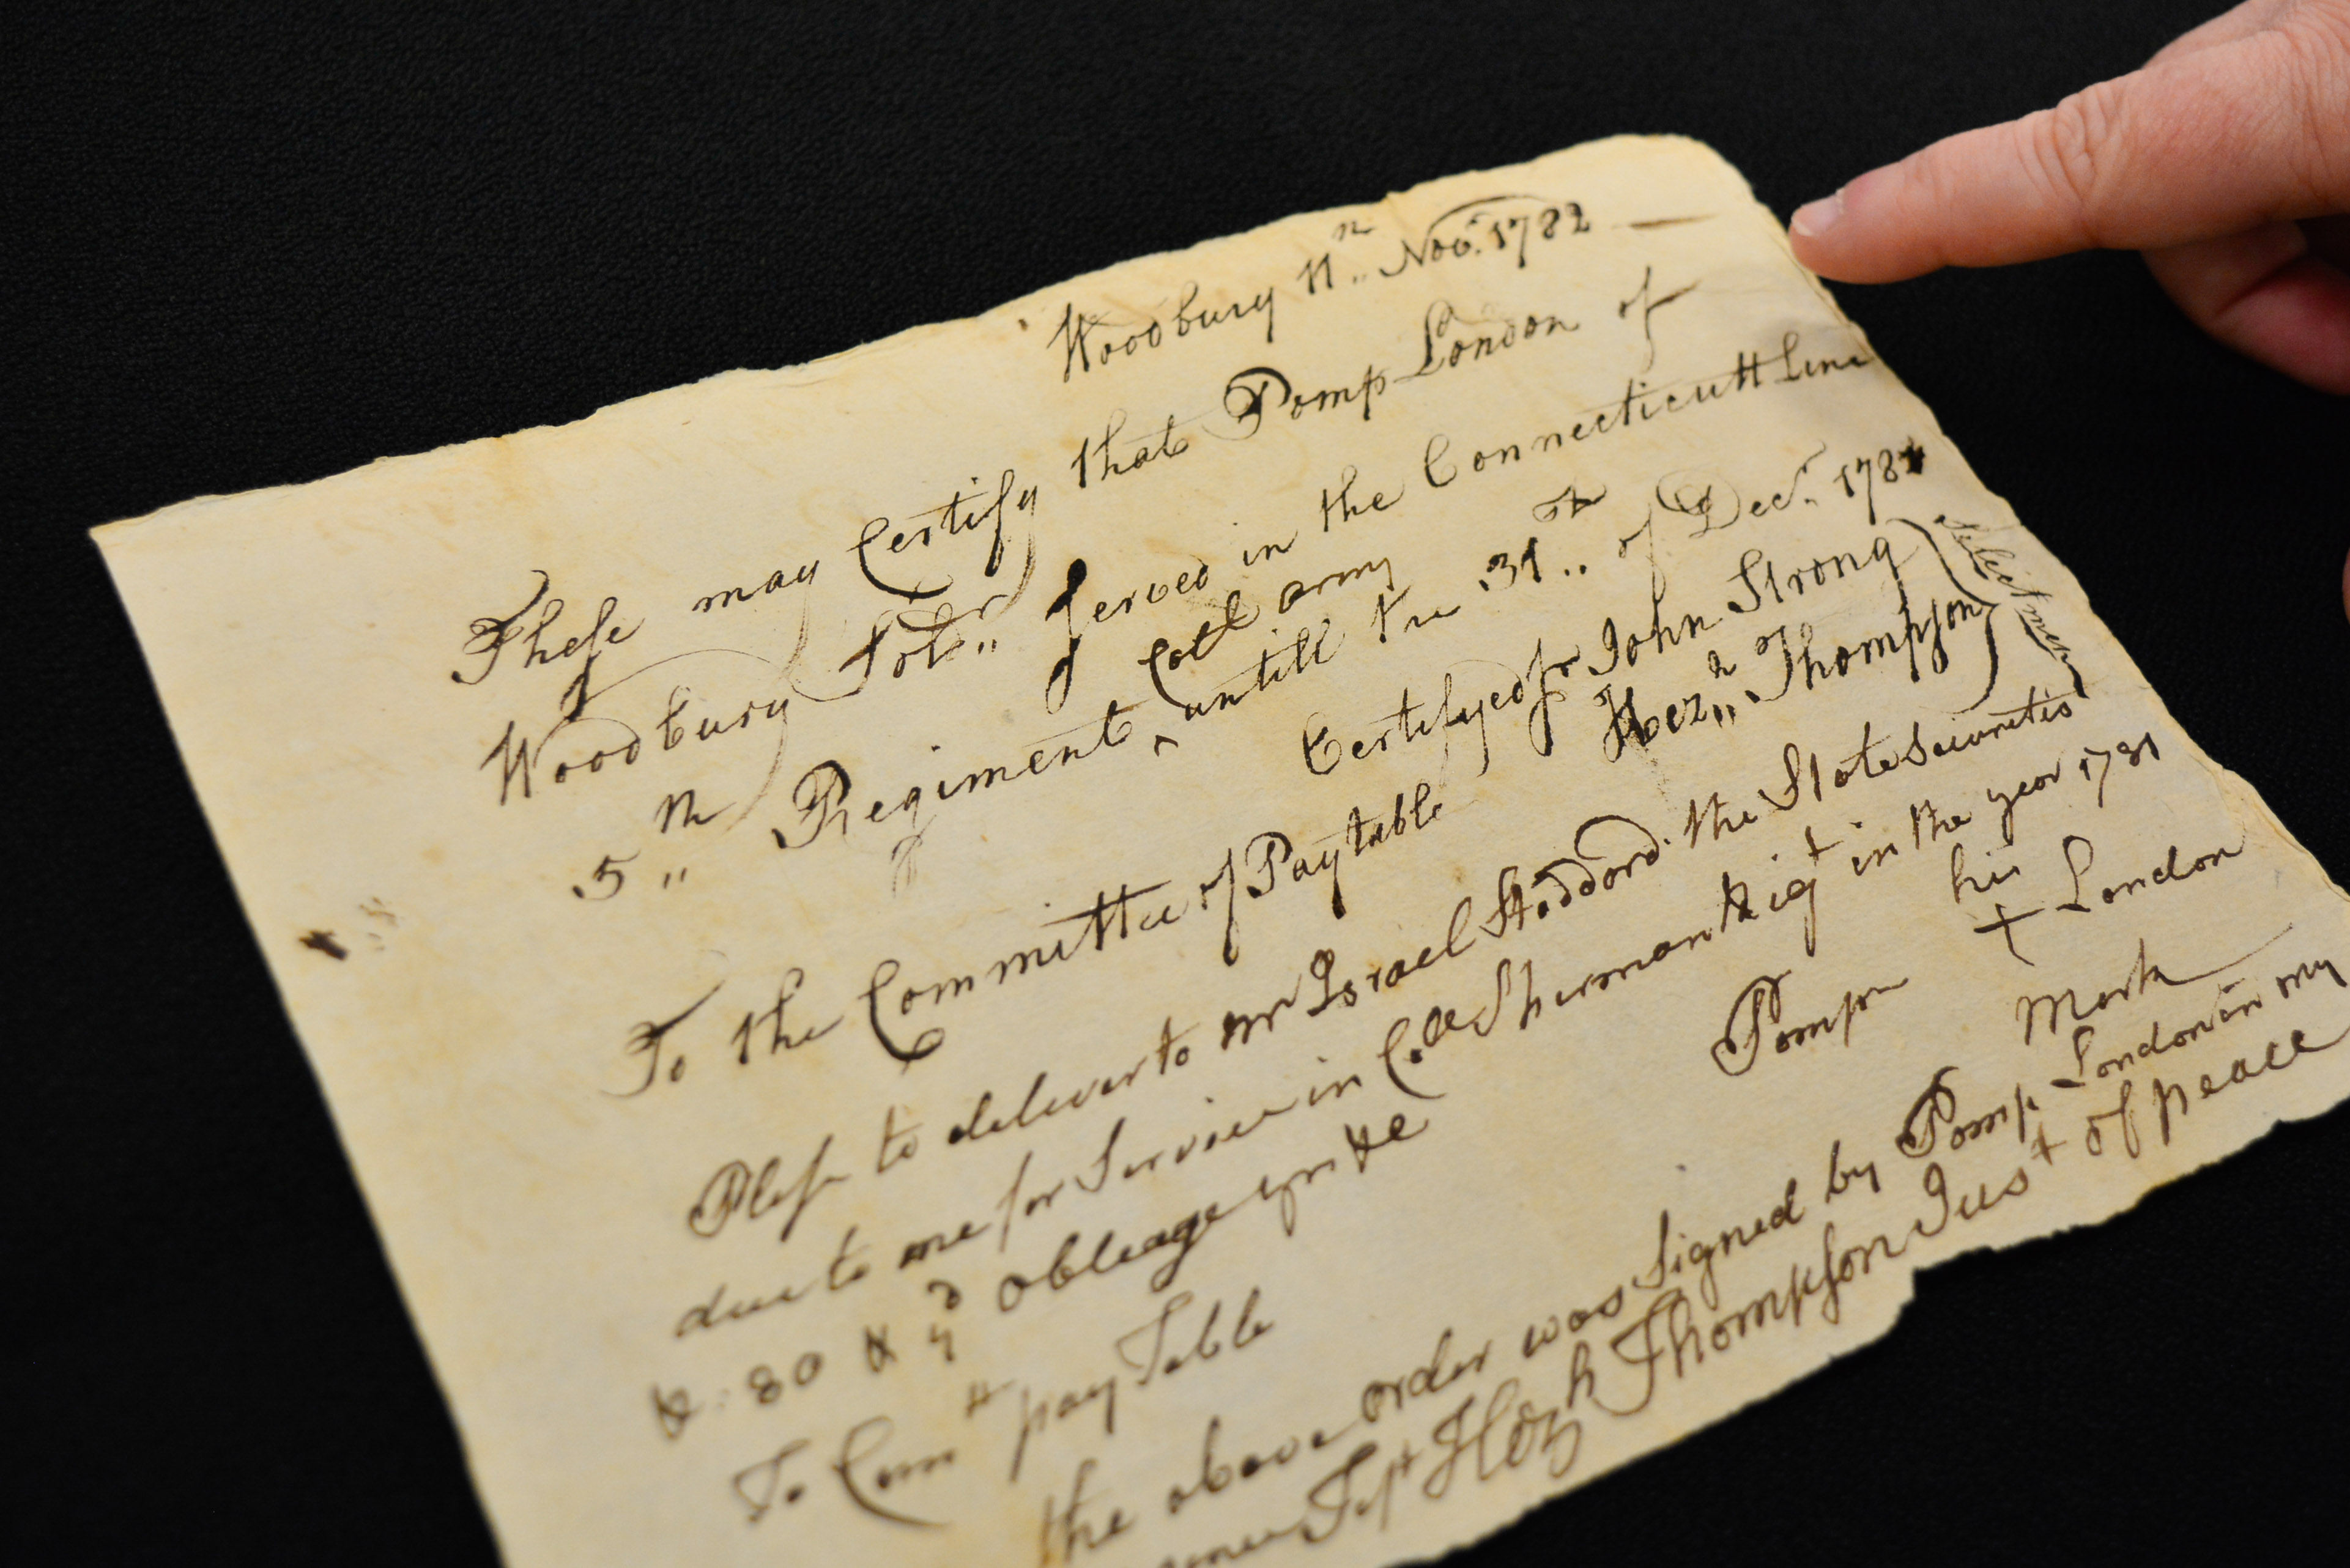 Woodbury 11th Novr. 1782
These may Certify that Pomp London of
Woodbury Solr served in the Connecticutt Line
5th Regiment Cotl army untill the 31st of Decr. 1781
Certifyed pr John Strong
Hezh Thompson
Select men
To the Committee of Paytable
Plese to deliver to mr Israel Stoddord the State Securitis
due to me for Service in Coll Shermans Rigt in the year 1781
& 80 & oblieage yrs &c
his
Pomp + London
Mark
To Comtt pay Table
the above order was Signed by Pomp London in my
Test Hezh Thompson Just of peace